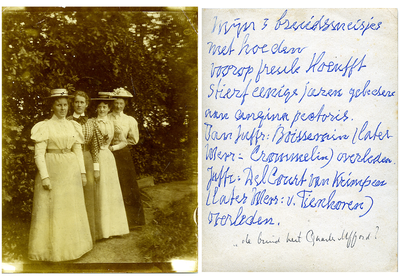 Mijn 3 bruidsmeisjes
met hoeden
voorop freule Hoeufft
stierf eenige jaren geleden
aan angina pectoris.
Dan Juffr: Boissevain (later
Mevr: Crommelin) overleden.
Juffr: Del Court van Krimpen
(later Mevr: v. Tienhoven)
overleden.
„de bruid heet